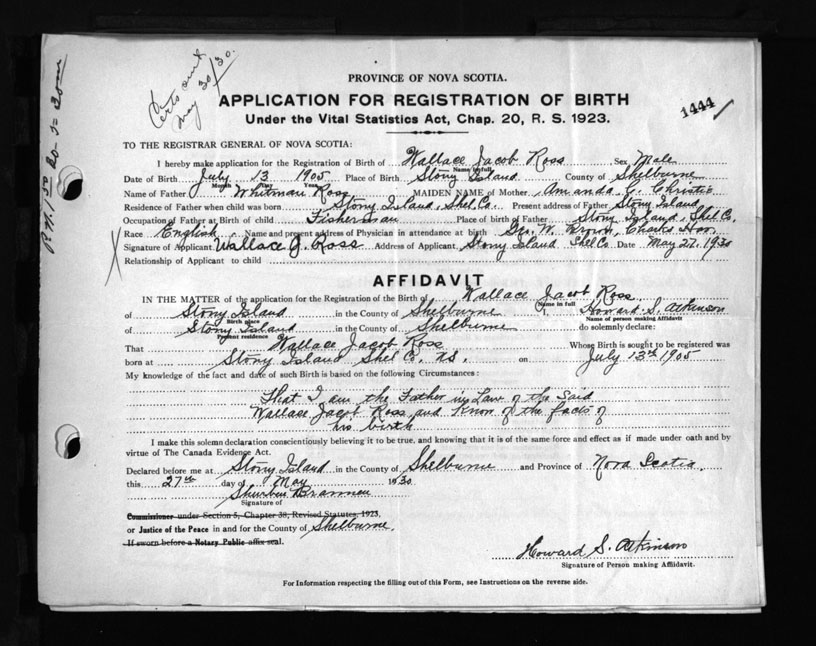 Certs sent
May 30/30.
PROVINCE OF NOVA SCOTIA.
APPLICATION FOR REGISTRATION OF BIRTH
1444
Under the Vital Statistics Act, Chap. 20, R. S. 1923.
TO THE REGISTRAR GENERAL OF NOVA SCOTIA:
I hereby make application for the Registration of Birth of Wallace Jacob Ross Sex Male
Name in full
Date of Birth July 13 1905 Place of Birth Stony Island County of Shelburne
Month Day Year
Name of Father Whitman Ross MAIDEN NAME of Mother Amanda C. Christie
Residence of Father when child was born Stony Island, Shel Co. Present address of Father Stony Island
Occupation of Father at Birth of child Fisherman Place of birth of Father Stony Island, Shel Co.
Race English Name and present address of Physician in attendance at birth W. Brown, Clarks Hbr.
X Signature of Applicant Wallace J. Ross Address of Applicant Stony Island Shel Co. Date May 27, 1930
Relationship of Applicant to child
AFFIDAVIT
IN THE MATTER of the application for the Registration of the Birth of Wallace Jacob Ross
Name in full
of Stony Island in the County of Shelburne I, Howard S. Atkinson
Birth place Name of person making Affidavit
of Stony Island in the County of Shelburne do solemnly declare:
Present residence
That Wallace Jacob Ross Whose Birth is sought to be registered was
born at Stony Island Shel Co. N.S. on July 13th 1905
My knowledge of the fact and date of such Birth is based on the following Circumstances:
That I am the Father in Law of the said
Wallace Jacob Ross and Know of the facts of
his birth
I make this solemn declaration conscientiously believing it to be true, and knowing that it is of the same force and effect as if made under oath and by
virtue of The Canada Evidence Act.
Declared before me at Stony Island in the County of Shelburne and Province of Nova Scotia.
this 27th day of May 1930
Signature of
Commissioner under Section 5, Chapter 38, Revised Statutes, 1923,
or Justice of the Peace in and for the County of Shelburne.
If sworn before a Notary Public affix seal.
Howard S. Atkinson
Signature of Person making Affidavit.
For Information respecting the filling out of this Form, see Instructions on the reverse side.